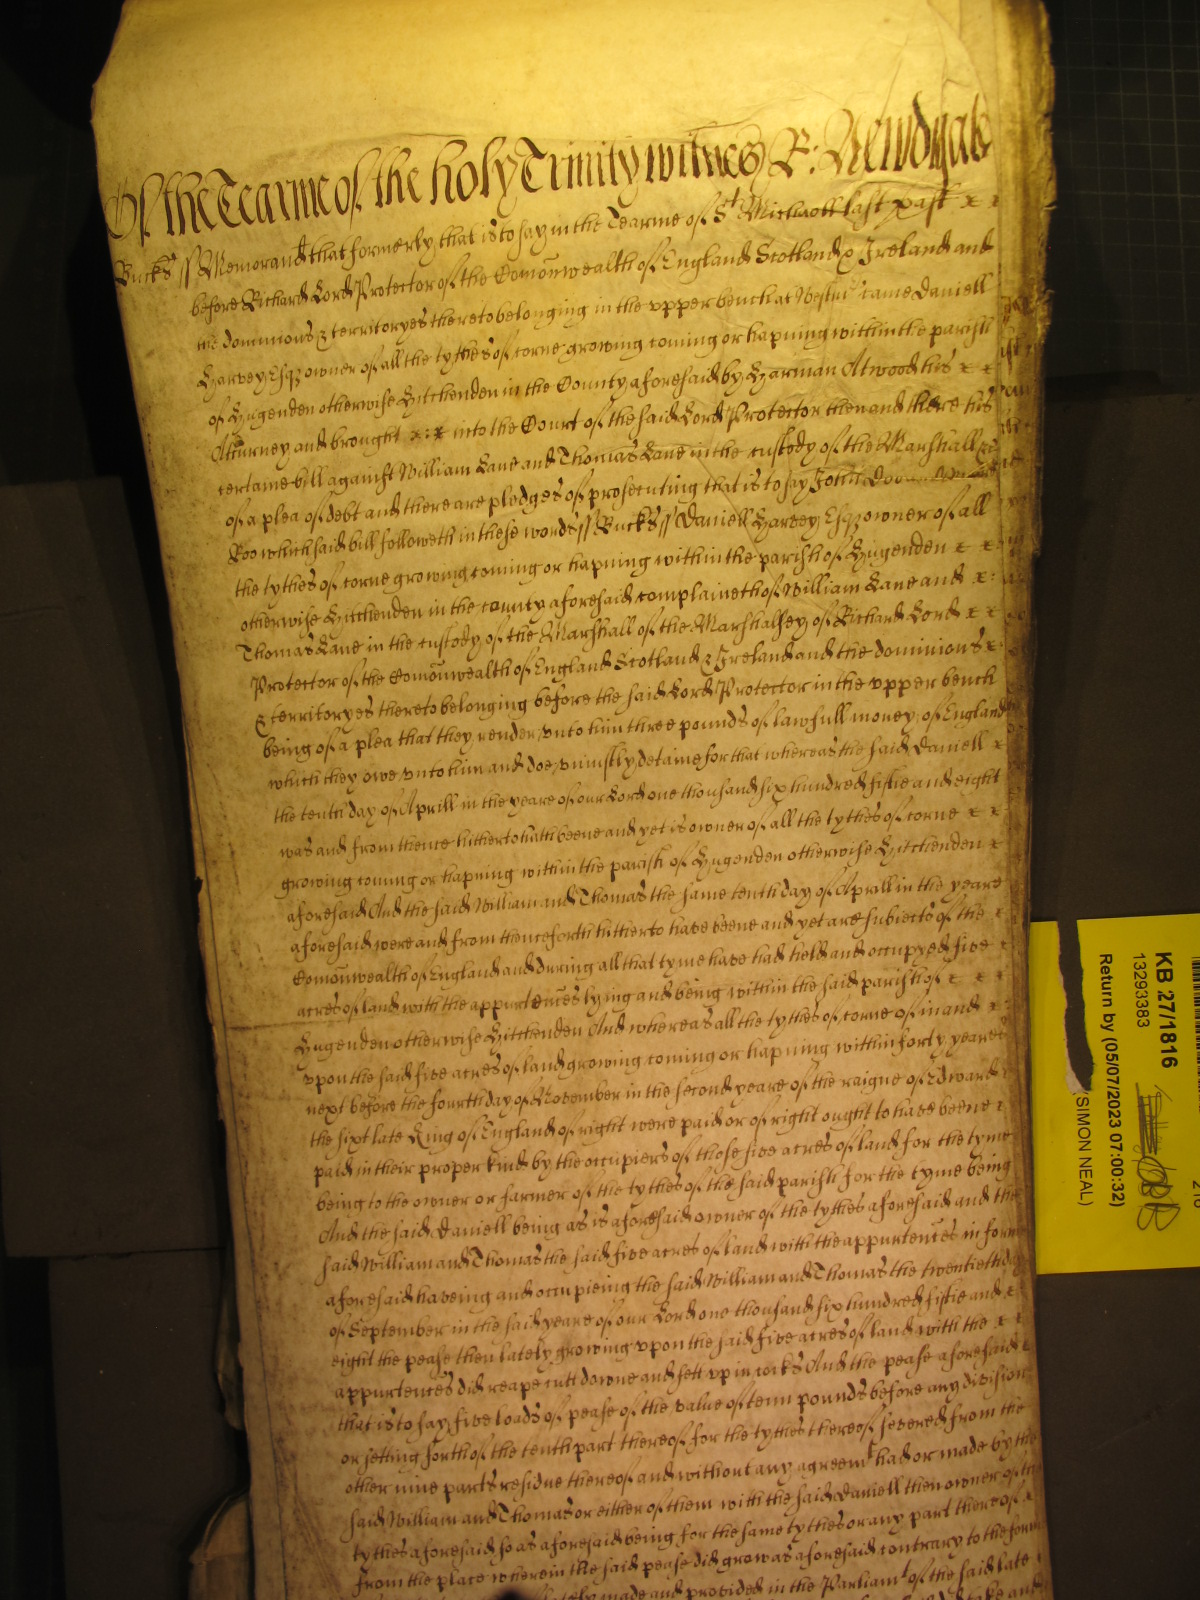 Of the Tearme of the holy Trinity witnes R: Newdigate
Bucks ss Memorand that formerly that is to say in the Tearme of St Michaell last past x x
before Richard Lord Protector of the Comonwealth of England Scotland & Ireland and
the dominions & territoryes thereto belonging in the upper bench at Westmr came Daniell
Harvey Esqr owner of all the tythes of corne growing coming or hapning within the parish
of Hugenden otherwise Hitchenden in the County aforesaid by Harman Atwood his x x
Atturney and brought x:x into the Court of the said Lord Protector then and there his
certaine bill against William Lane and Thomas Lane in the custody of the Marshall &c
of a plea of debt and there are pledges of prosecuting that is to say John Doo
Roo which said bill followeth in these words ss Bucks ss Daniell Harvey Esqr owner of all
the tythes of corne growing coming or hapning within the parish of Hugenden x x
otherwise Hitchenden in the county aforesaid complaineth of William Lane and x:
Thomas Lane in the custody of the Marshall of the Marshalsey of Richard Lord x x
Protector of the Comonwealth of England Scotland & Ireland and the dominions x
& territoryes thereto belonging before the said Lord Protector in the upper bench
being of a plea that they render unto him three pounds of lawfull money of England
which they owe unto him and doe uniustly detaine for that whereas the said Daniell x
the tenth day of Aprill in the yeare of our Lord one thousand six hundred fiftie and eight
was and from thence hitherto hath beene and yet is owner of all the tythes of corne x x
growing coming or hapning within the parish of Hugenden otherwise Hitchenden x
aforesaid And the said William and Thomas the same tenth day of Aprill in the yeare
aforesaid were and from thenceforth hitherto have beene and yet are subiects of the x
Comonwealth of England and during all that tyme have had held and occupyed five x
acres of land with the appurtences lying and being within the said parish of x x x
Hugenden otherwise Hitchenden And whereas all the tythes of corne of in and x
upon the said five acres of land growing coming or hapning within forty yeares
next before the fourth day of November in the second yeare of the raigne of Edward
the sixt late King of England of right were paid or of right ought to have beene x
paid in their proper kind by the occupiers of those five acres of land for the tyme
being to the owner or farmer of the tythes of the said parish for the tyme being
And the said Daniell being as is aforesaid owner of the tythes aforesaid and the
said William and Thomas the said five acres of land with the appurtences in forme
aforesaid haveing and occupieing the said William and Thomas the twentieth day
of September in the said yeare of our Lord one thousand six hundred fiftie and x
eight the pease then lately growing upon the said five acres of land with the x x
appurtences did reape cutt downe and sett up in cocks And the pease aforesaid x
that is to say five loads of pease of the value of tenn pounds before any division
or setting forth of the tenth part thereof for the tythes thereof severed from the
other nine parts residue thereof and without any agreemt had or made by the
said William and Thomas or either of them with the said Daniell then owner of the
tythes aforesaid so as aforesaid being for the same tythes or any part thereof x
from the place wherein the said pease did grow as aforesaid contrary to the forme
lately made and provided in the Parliamt of the said late
KB 27/1816
13293383
Return by (05/07/2023 07:00:32)
(SIMON NEAL)